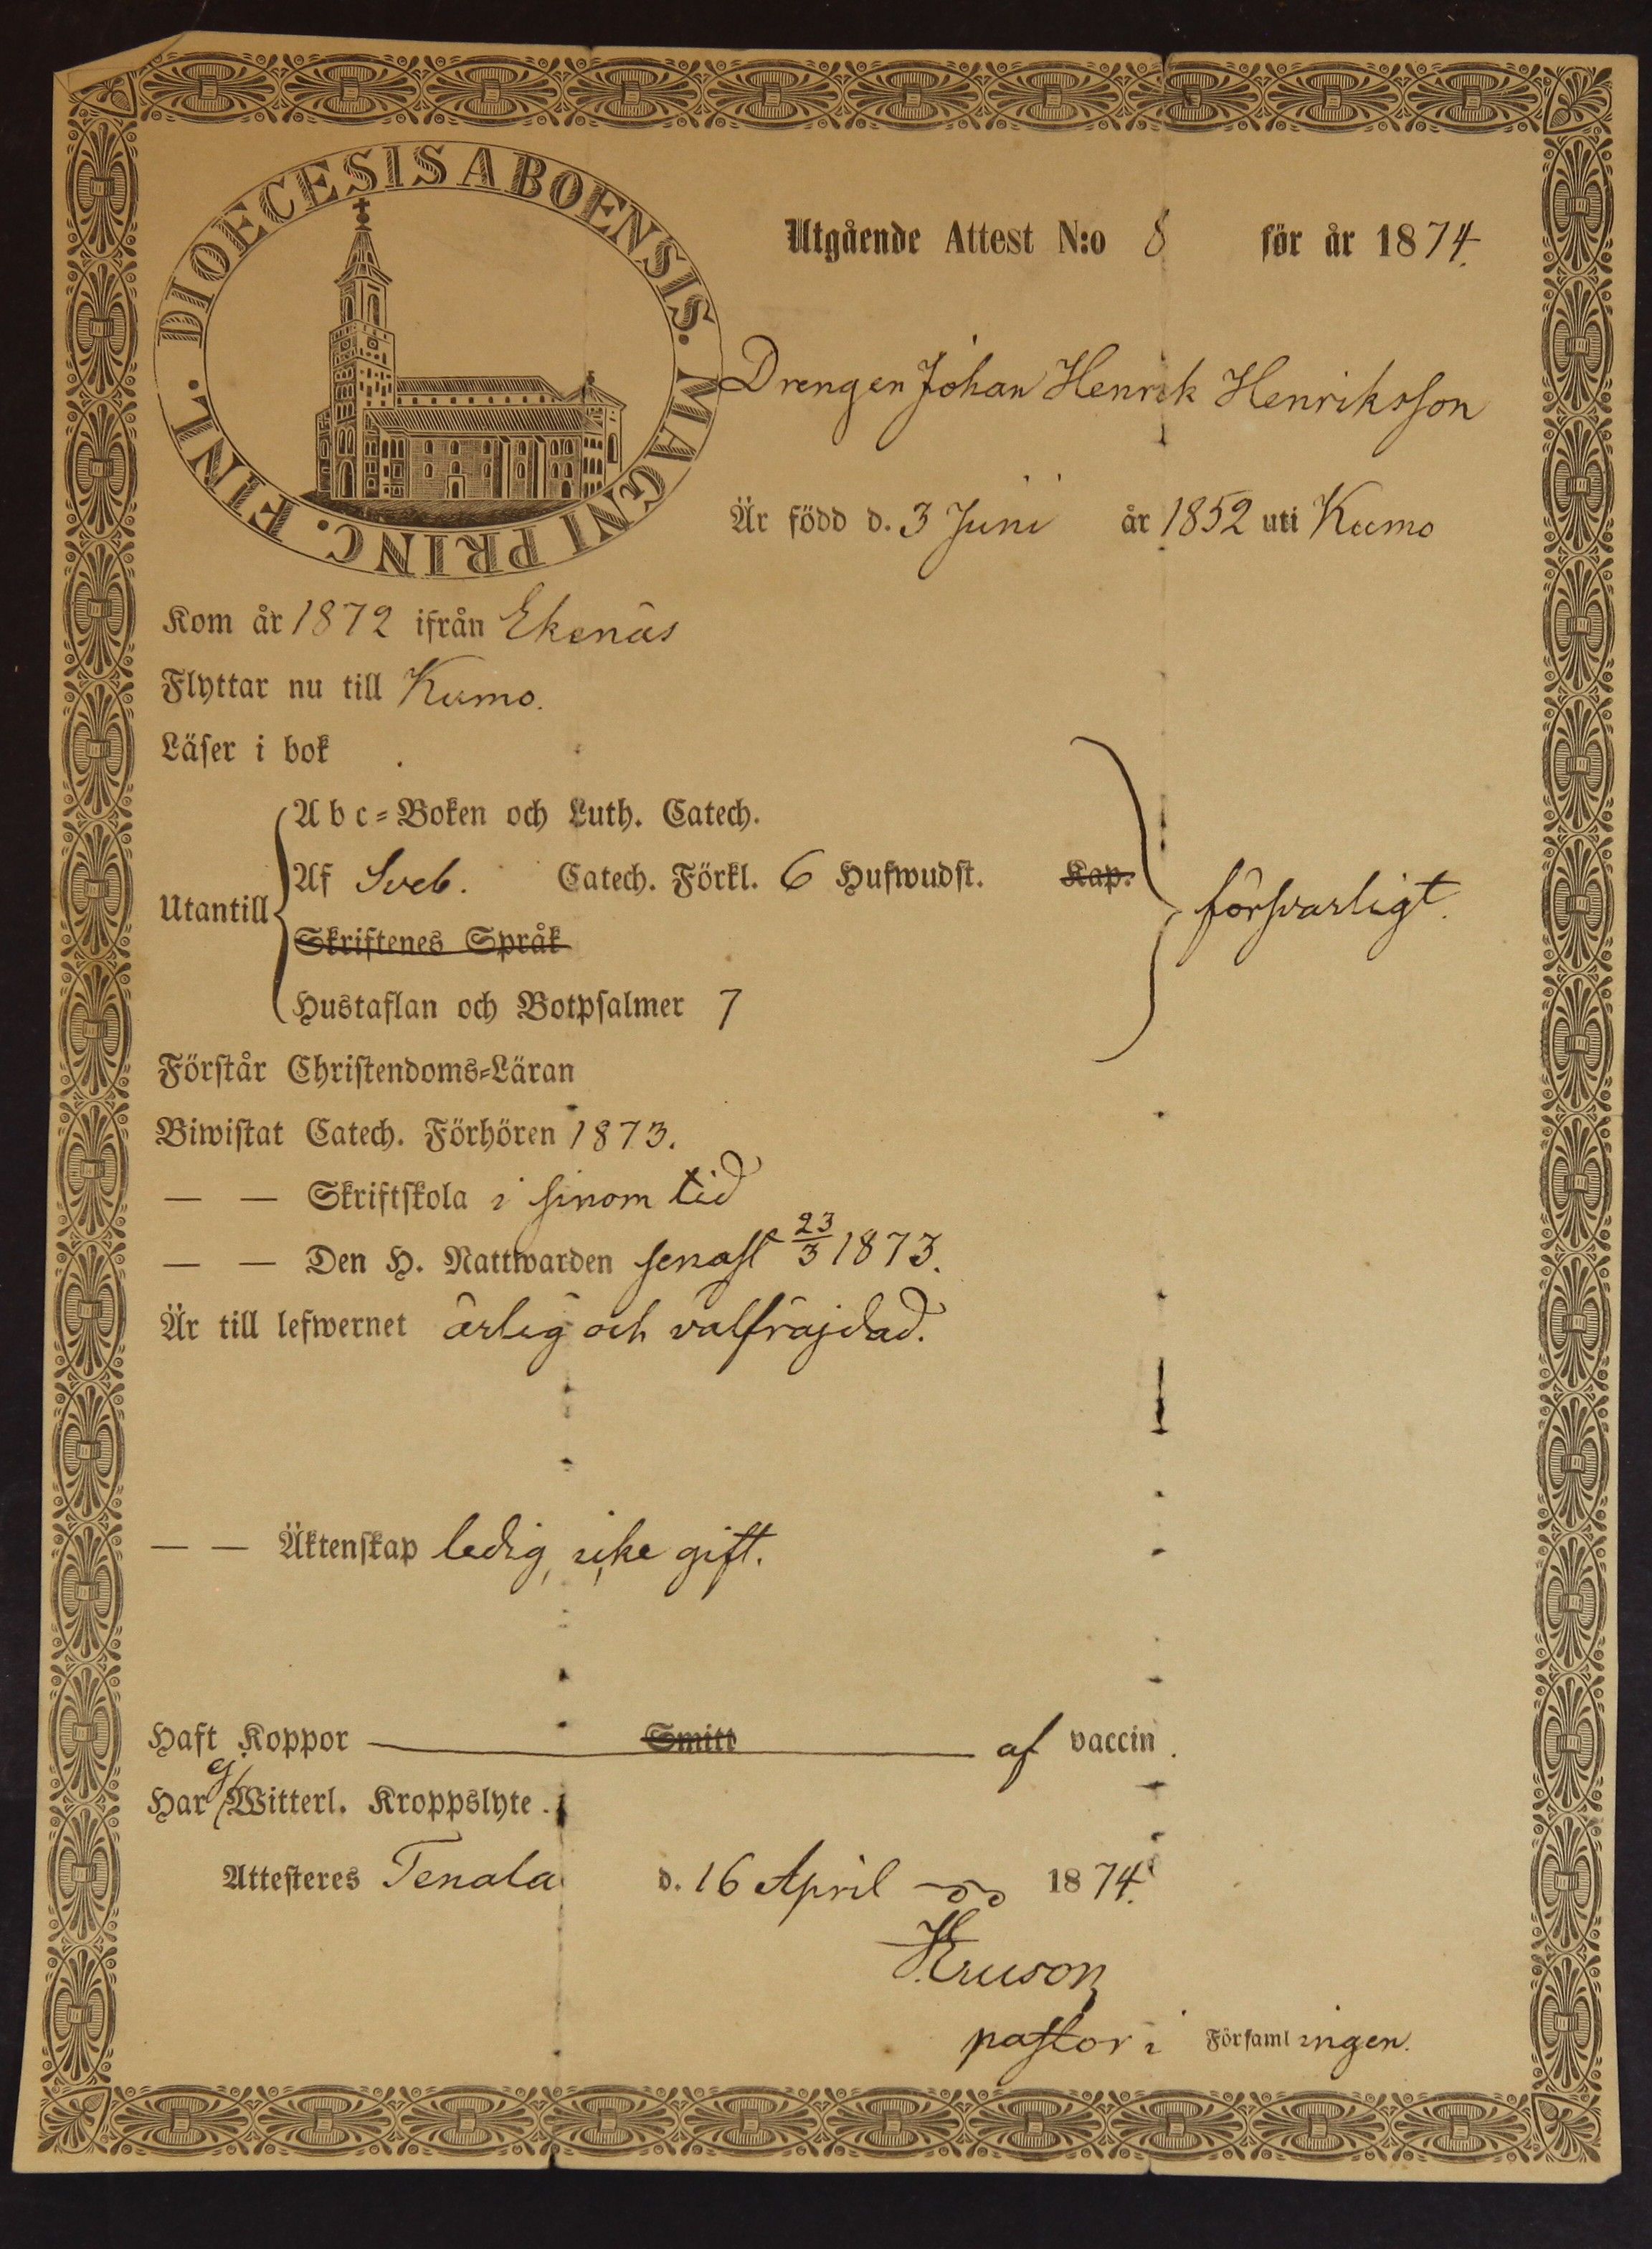 DIOECESIS ABOENSIS. MAGNI PRINC. FINL.
Utgående Attest N:o 8 för år 1874.
Drengen Johan Henrik Henriksson
Är född d. 3 Juni år 1852 uti Kumo
Kom år 1872 ifrån Ekenäs
Flyttar nu till Kumo.
Läser i bok
Abc-Boken och Luth. Catech.
Utantill Af Sveb. Catech. Förkl. 6 Hufwudst. Kap. försvarligt.
Skriftenes Språk
Hustaflan och Botpsalmer 7
Förstår Christendoms-Läran
Biwistat Catech. Förhören 1873.
— — Skriftskola i sinom tid
— — Den H. Nattwarden senast 23/3 1873.
Är till lefwernet ärlig och välfräjdad.
— — Äktenskap ledig, icke gift.
Haft Koppor Smitt af vaccin.
Har ej Witterl. Kroppslyte.
Attesteres Tenala d. 16 April 1874.
pastor i Församlingen.